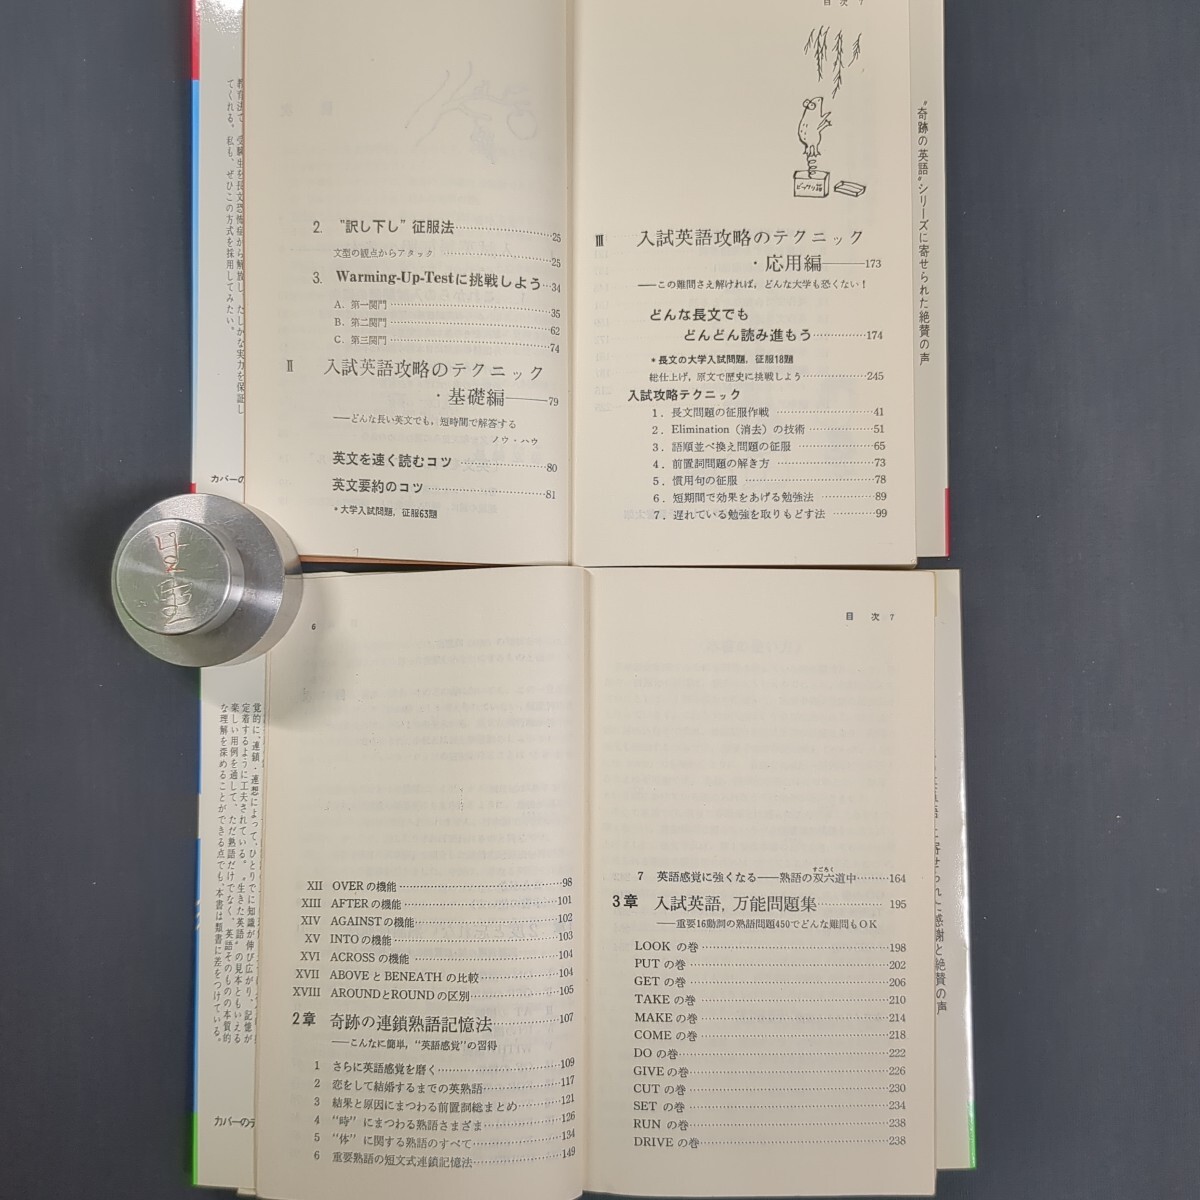 教育法で、受験生を長文恐怖症から解放し、たしかな実力を保証し
てくれる。私も、ぜひこの方式を採用してみたい。
カバーの
2. “訳し下し”征服法 25
文型の観点からアタック 25
3. Warming-Up-Testに挑戦しよう 34
A. 第一関門 35
B. 第二関門 62
C. 第三関門 74
Ⅱ 入試英語攻略のテクニック
・基礎編 79
——どんな長い英文でも，短時間で解答する
ノウ・ハウ
英文を速く読むコツ 80
英文要約のコツ 81
*大学入試問題，征服63題
目 次 7
ビックリ箱
Ⅲ 入試英語攻略のテクニック
・応用編 173
——この難問さえ解ければ，どんな大学も恐くない！
どんな長文でも
どんどん読み進もう 174
*長文の大学入試問題，征服18題
総仕上げ，原文で歴史に挑戦しよう 245
入試攻略テクニック
1. 長文問題の征服作戦 41
2. Elimination（消去）の技術 51
3. 語順並べ換え問題の征服 65
4. 前置詞問題の解き方 73
5. 慣用句の征服 78
6. 短期間で効果をあげる勉強法 89
7. 遅れている勉強を取りもどす法 99
“奇跡の英語”シリーズに寄せられた絶賛の声
覚的に、連鎖・連想によって、ひとりでに知識が伸び広がり、記憶が
定着するように工夫されている。“生きた英語”の見本ともいえる
楽しい用例を通して、ただ熟語だけでなく、英語そのものの本質的
な理解を深めることができる点でも、本書は類書に差をつけている。
カバーのデ
6
XII OVERの機能 98
XIII AFTERの機能 101
XIV AGAINSTの機能 102
XV INTOの機能 103
XVI ACROSSの機能 104
XVII ABOVEとBENEATHの比較 104
XVIII AROUNDとROUNDの区別 105
2章 奇跡の連鎖熟語記憶法 107
——こんなに簡単，“英語感覚”の習得
1 さらに英語感覚を磨く 109
2 恋をして結婚するまでの英熟語 117
3 結果と原因にまつわる前置詞総まとめ 121
4 “時”にまつわる熟語さまざま 126
5 “体”に関する熟語のすべて 134
6 重要熟語の短文式連鎖記憶法 149
目 次 7
7 英語感覚に強くなる——熟語の双六道中 164
すごろく
3章 入試英語，万能問題集 195
——重要16動詞の熟語問題450でどんな難問もOK
LOOK の巻 198
PUT の巻 202
GET の巻 206
TAKE の巻 210
MAKE の巻 214
COME の巻 218
DO の巻 222
GIVE の巻 226
CUT の巻 230
SET の巻 234
RUN の巻 238
DRIVE の巻 238
に寄せられた感謝と絶賛の声